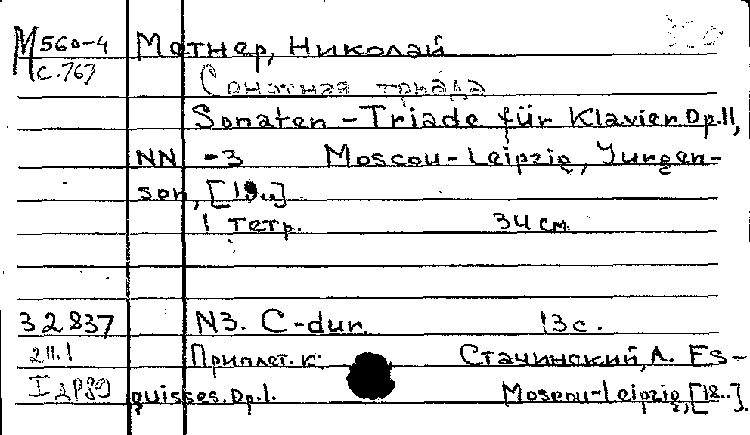 М 560-4 Метнер, Николай
с.767 Сонатная триада
Sonaten-Triade für Klavier Op.11,
NN -3 Moscou-Leipzig, Jurgen-
son,
1 тетр. 34 см.
32837 N3. C-dur. 13 с.
211.1 Приплет. к: Стачинский, А. Es-
quisses. Op.1. Moscou-Leipzig, [18..].